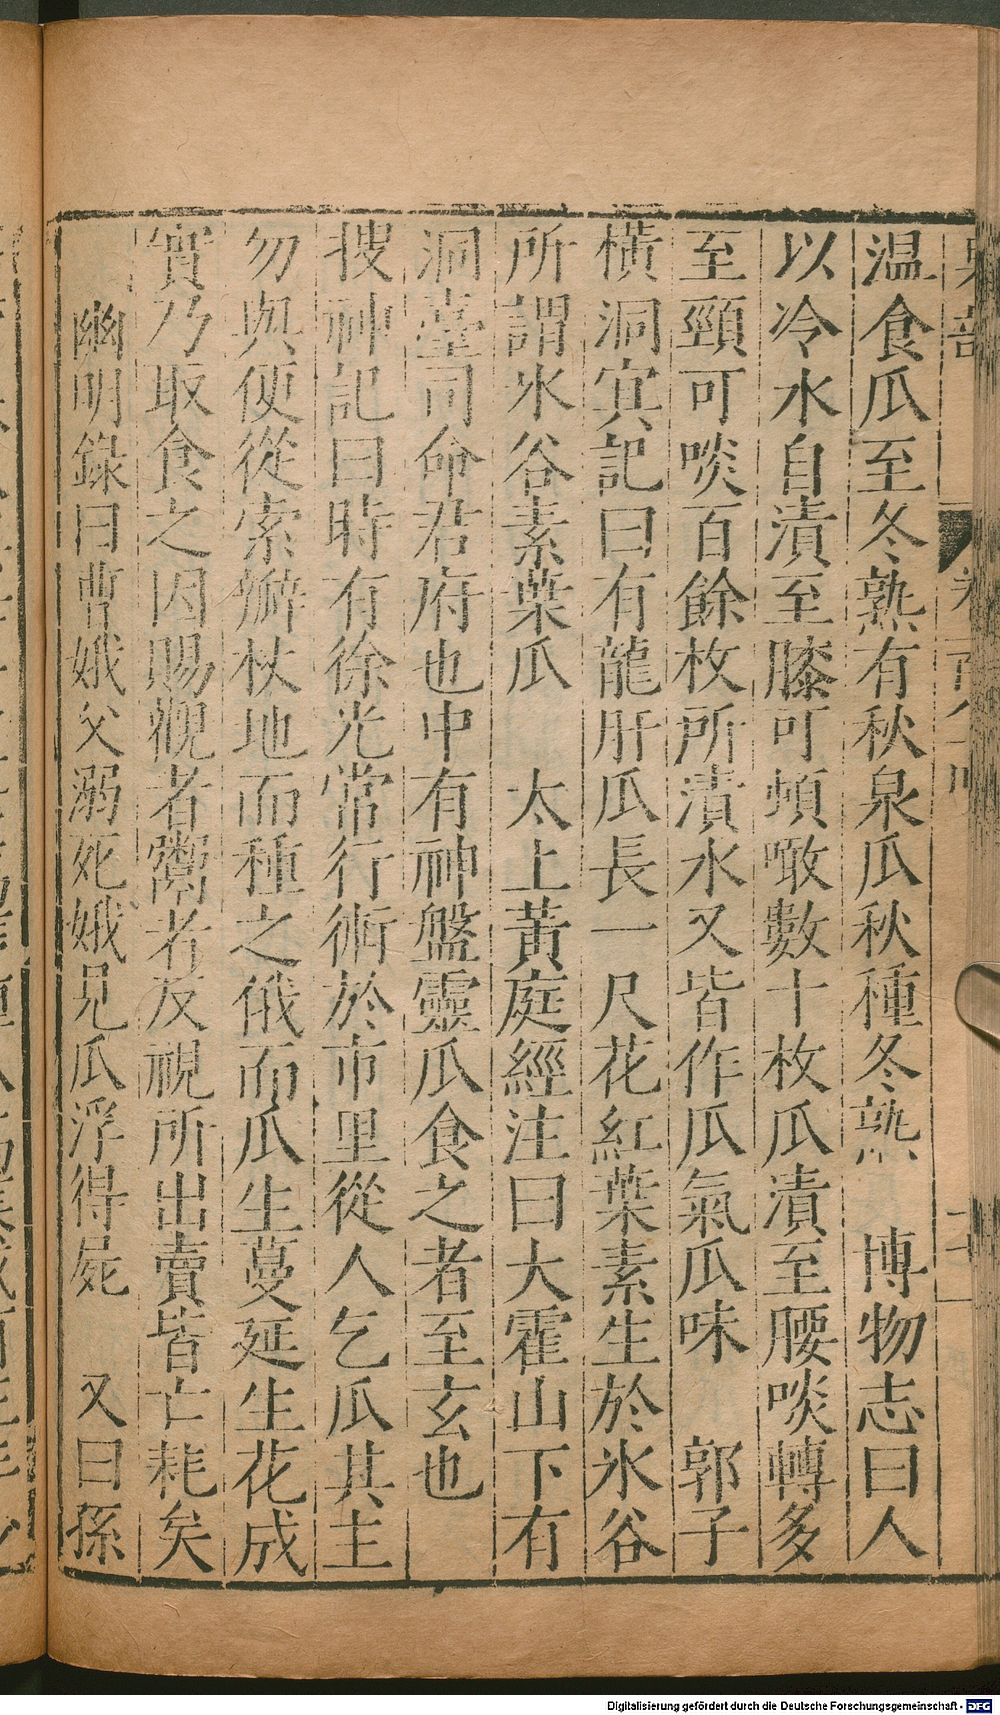 温食瓜至冬熟有秋泉瓜秋種冬熟　博物志曰人
以冷水自漬至膝可頓噉數十枚瓜漬至腰啖轉多
至頸可啖百餘枚所漬水又皆作瓜氣瓜味　郭子
橫洞冥記曰有龍肝瓜長一尺花紅葉素生於氷谷
所謂氷谷素葉瓜　太上黃庭經注曰大霍山下有
洞臺司命君府也中有神盤靈瓜食之者至玄也
搜神記曰時有徐光常行術於市里從人乞瓜其主
勿與便從索瓣杖地而種之俄而瓜生蔓延生花成
實乃取食之因賜觀者鬻者反視所出賣皆亡耗矣
幽明錄曰曹娥父溺死娥見瓜浮得屍　又曰孫
Digitalisierung gefördert durch die Deutsche Forschungsgemeinschaft - DFG